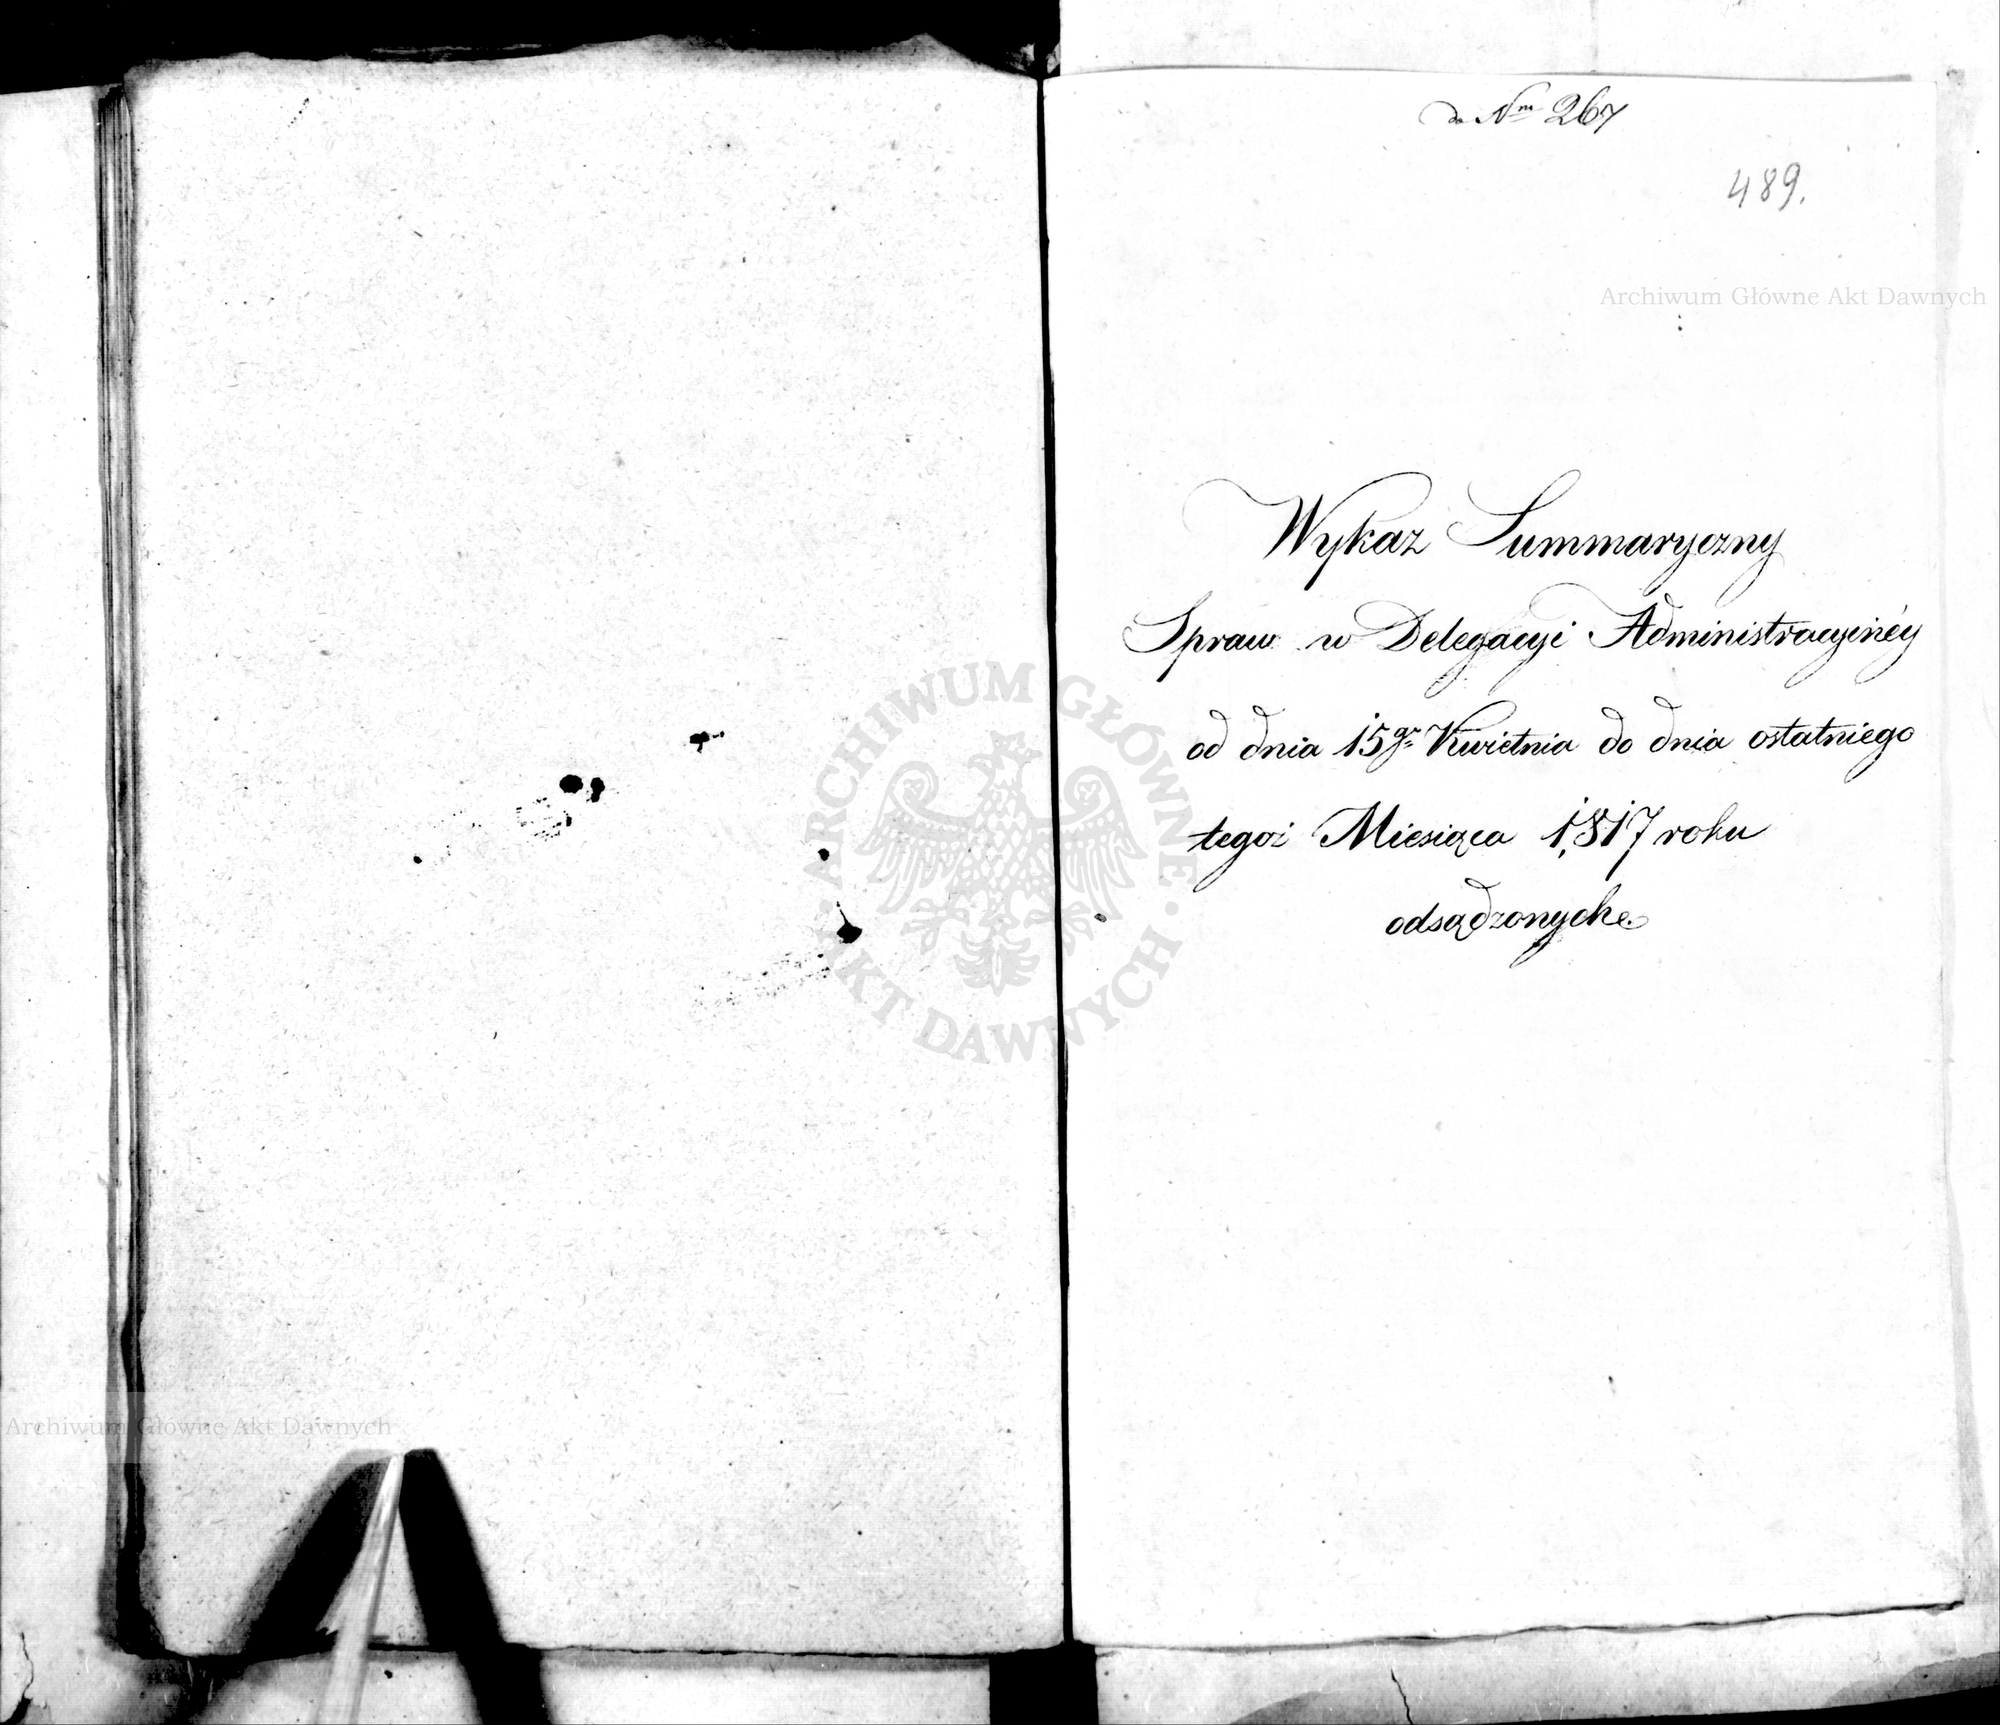 do Nru 267
489.
Archiwum Główne Akt Dawnych
Wykaz Summaryczny
Spraw w Delegacyi Administracyinéy
od dnia 15go Kwietnia do dnia ostatniego
ARCHIWUM GŁÓWNE AKT DAWNYCH
tegoż Miesiąca 1817 roku
odsądzonych
Archiwum Główne Akt Dawnych